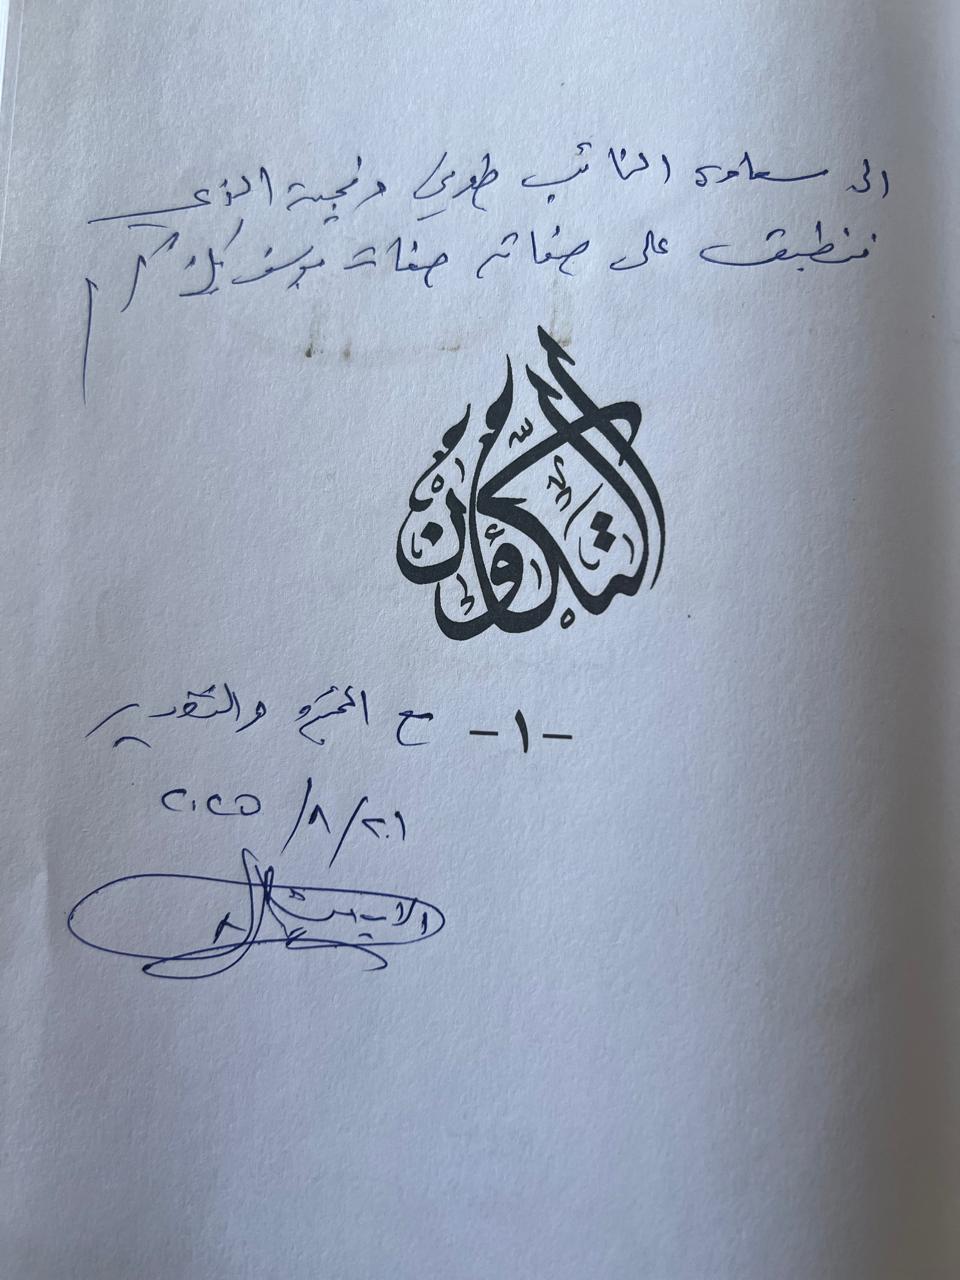 الى سعادة النائب طوني فرنجية الذي
تنطبق على صفاته صفات يوسف بك كرم
التكاون
- ١ -
مع المحبة والتقدير
٢٠٢٥ / ٨ / ٢١